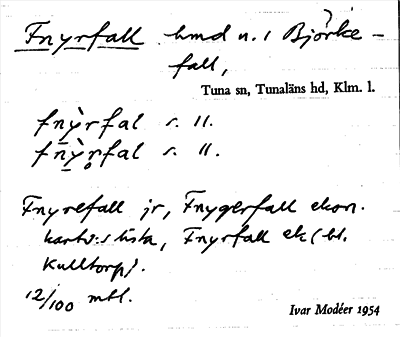 Fnyrfall hmd u. i Björke-
fall,
Tuna sn, Tunaläns hd, Klm. l.
fnỳrfal s. ll.
fn̄ỳr̥fal s. ll.
Fnyrefall jr, Fnygerfall ekon.
kartv:s lista, Fnyrfall ek (bl.
Kulltorp).
12/100 mtl.
Ivar Modéer 1954